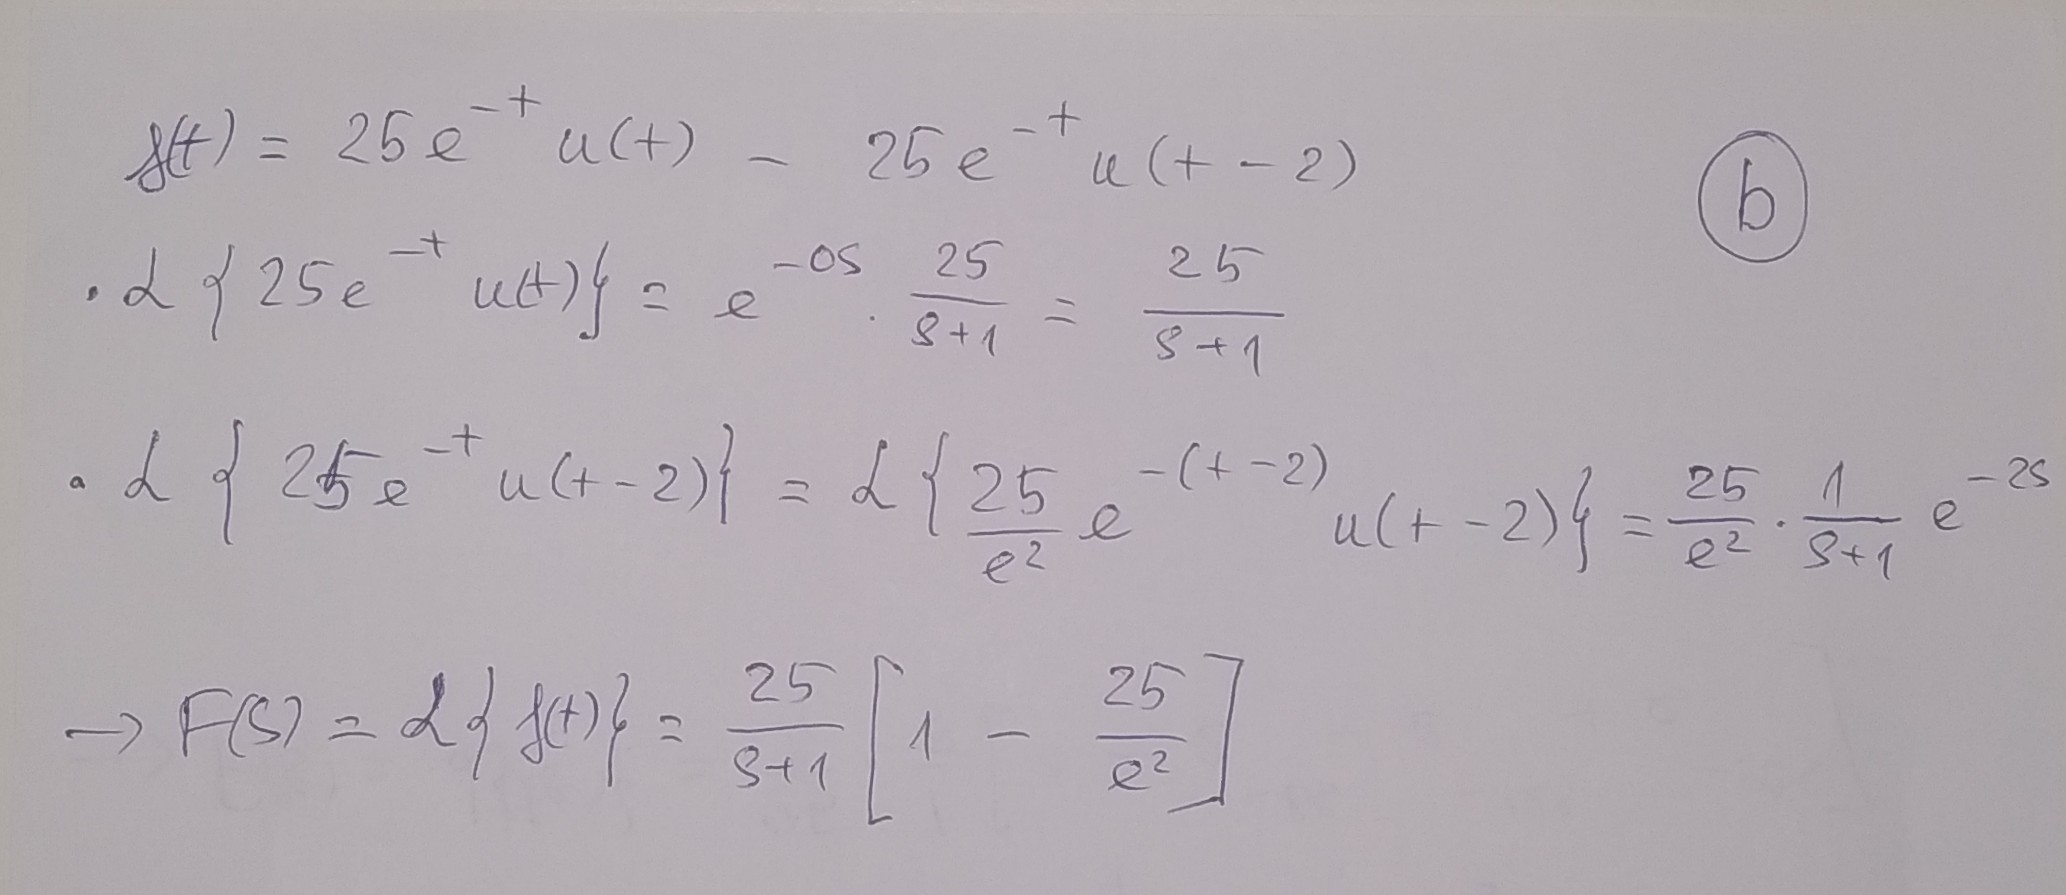 f(t) = 25 e^{-t} u(t) - 25 e^{-t} u(t-2)
b
• ℒ{25e^{-t} u(t)} = e^{-0s} · \frac{25}{s+1} = \frac{25}{s+1}
• ℒ{25e^{-t} u(t-2)} = ℒ{\frac{25}{e^2} e^{-(t-2)} u(t-2)} = \frac{25}{e^2} · \frac{1}{s+1} e^{-2s}
→ F(s) = ℒ{f(t)} = \frac{25}{s+1} [1 - \frac{25}{e^2}]